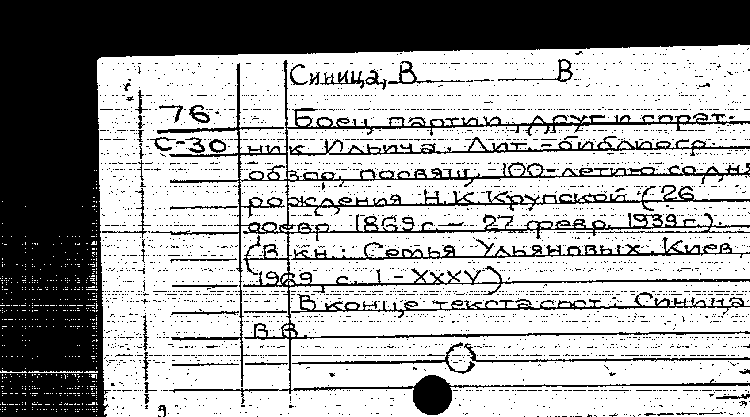 Синица, В В
76
С-30
Боец партии, друг и сорат-
ник Ильича. Лит.-библиогр.
обзор, посвящ. 100-летию со дня
рождения Н.К.Крупской (26
февр. 1869 г. - 27 февр. 1939 г.).
(В кн.: Семья Ульяновых. Киев,
1969, с. I-XXXV).
В конце текста сост.: Синица
В.В.